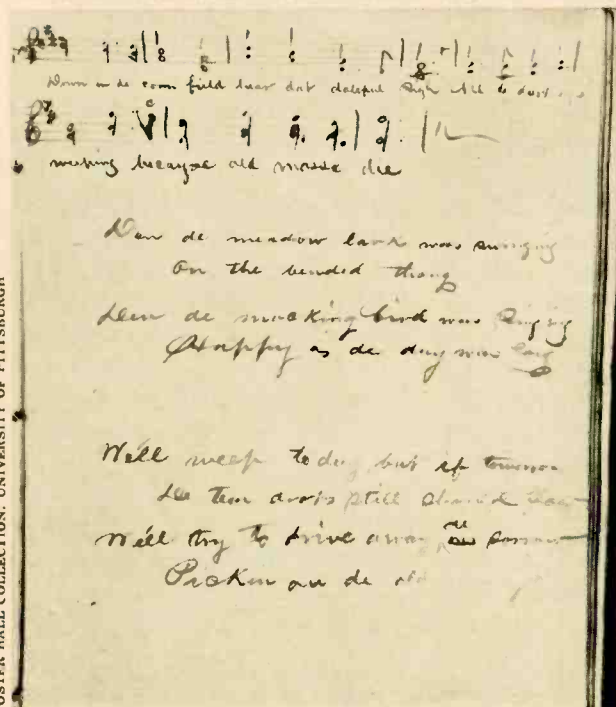 Down in de corn field hear dat doleful
weeping because old massa die
Den de meadow lark was swinging
On the bended thong
Den de mocking bird was singing
Happy as de day was long
We'll weep to day but if tomorrow
De tear drops still should
We'll try to drive away de sorrow
Pickin on de old
OSTER HALL COLLECTION, UNIVERSITY OF PITTSBURGH